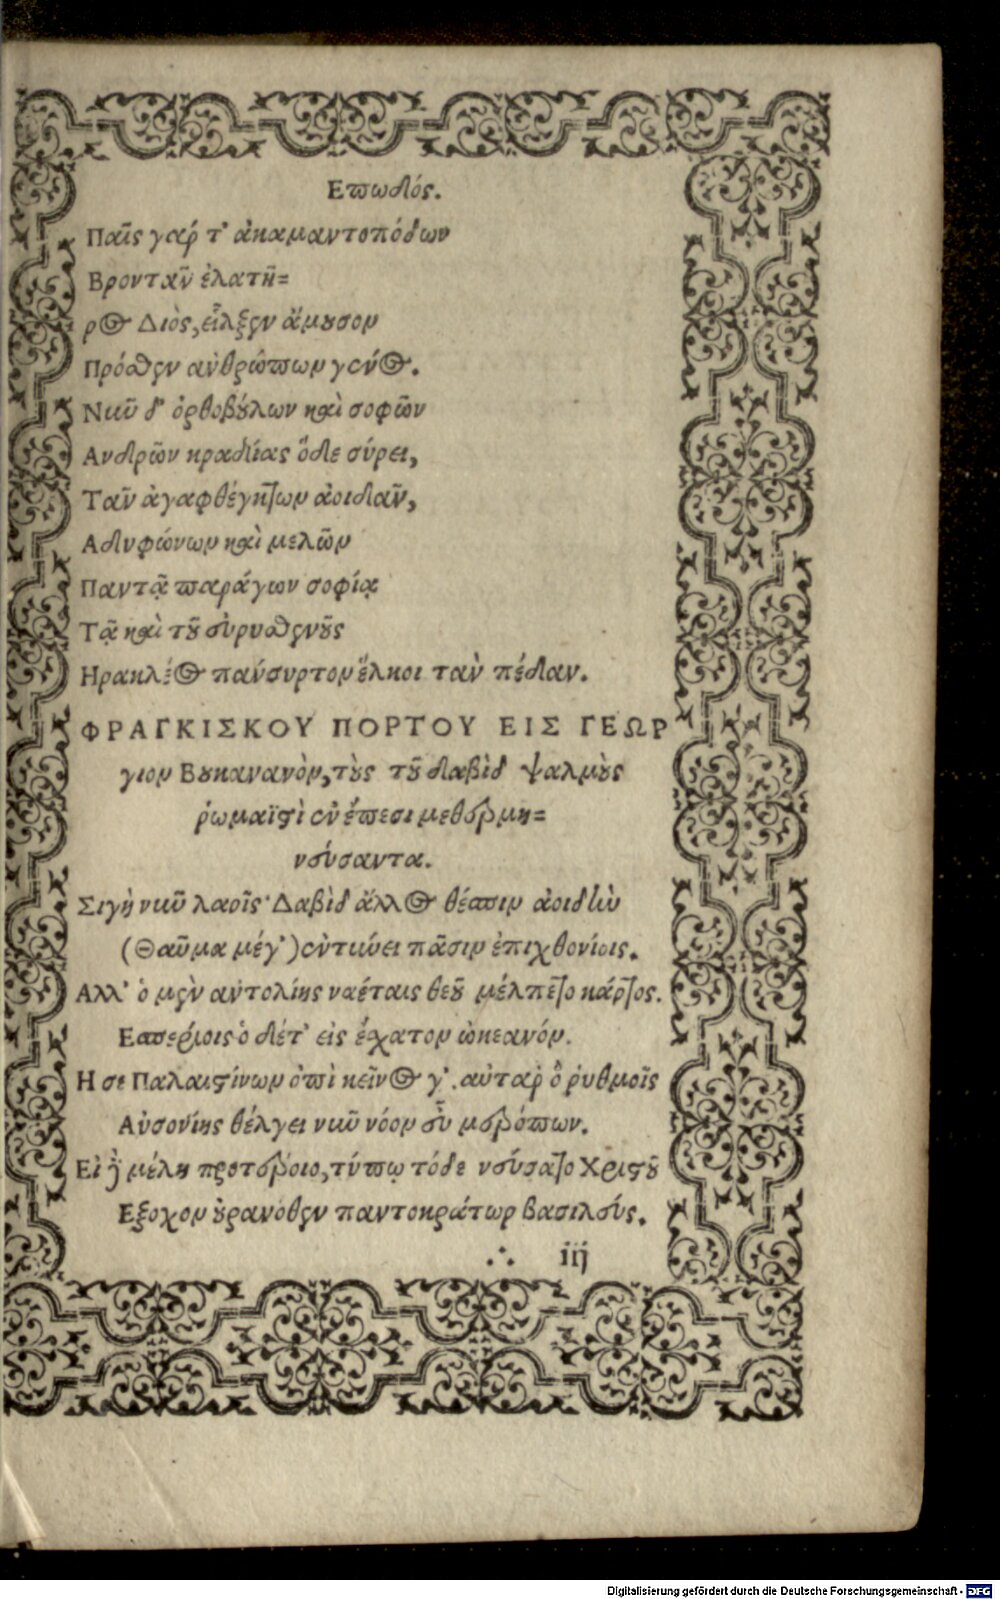 Επωδός.
Παῖς γάρ τ' ἀκαμαντοπόδων
Βροντᾶν ἐλατῆ=
ρος Διὸς, εἷλξεν ἄμουσον
Πρόσθεν ἀνθρώπων γένος.
Νῦν δ' ὀρθοβούλων καὶ σοφῶν
Ανδρῶν κραδίας ὅδε σύρει,
Τᾶν ἀγαφθέγκτων ἀοιδᾶν,
Αδυφώνων καὶ μελῶν
Παντᾷ παράγων σοφίᾳ
Τᾷ καὶ τοῦ εὐρυσθενοῦς
Ηρακλέος πάνσυρτον ἕλκοι τὰν πέδαν.
ΦΡΑΓΚΙΣΚΟΥ ΠΟΡΤΟΥ ΕΙΣ ΓΕΩΡ
γιον Βουκανανὸν, τοὺς τοῦ δαβὶδ ψαλμοὺς
ῥωμαϊστὶ ἐν ἔπεσι μεθερμη=
νεύσαντα.
Σιγὴ νῦν λαοῖς· Δαβὶδ ἄλλος θέσπιν ἀοιδὴν
(Θαῦμα μέγ') ἐντύνει πᾶσιν ἐπιχθονίοις.
Αλλ' ὁ μὲν ἀντολίης ναέταις θεοῦ μέλπετο κάρτος.
Εσπερίοις ὁ δέ τ' εἰς ἔσχατον ὠκεανόν.
Η σε Παλαιστίνων ὀπὶ κεῖνος γ'. αὐτὰρ ὃ ῥυθμοῖς
Αὐσονίης θέλγει νῦν νόον εὖ μερόπων.
Εἰ μέλη προτέροιο, τύπῳ τόδε νεύσατο Χριστοῦ
Εξοχον οὐρανοθεν παντοκράτωρ βασιλεύς.
∴ iij
Digitalisierung gefördert durch die Deutsche Forschungsgemeinschaft - DFG